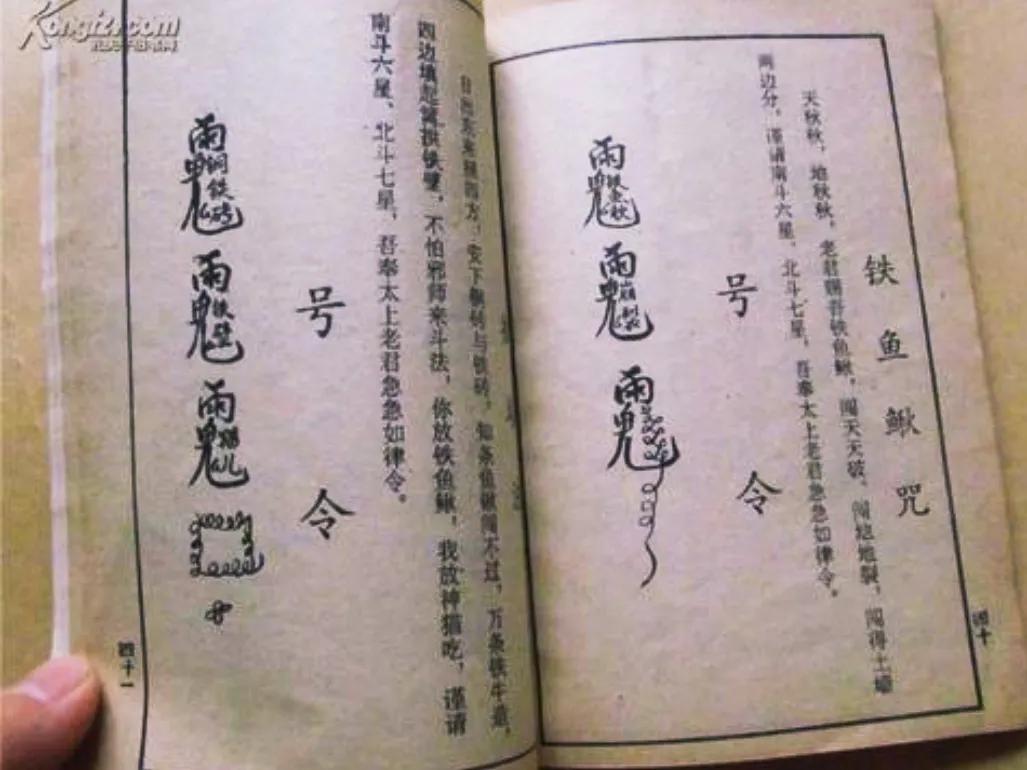 铁鱼鳅咒
天秋秋，地秋秋，老君赐吾铁鱼鳅，闯天天破，闯地地裂，闯得土墙
两边分，谨请南斗六星，北斗七星，吾奉太上老君急急如律令。
号令
四十
四方，安下铜砖与铁砖，知条鱼鳅闯不过，万条铁牛
四边填起铁壁，不怕邪师来斗法，你放铁鱼鳅，我放神猫吃，谨请
南斗六星、北斗七星，吾奉太上老君急急如律令。
号令
雨鬼铜铁砖
雨鬼铁壁
雨鬼猫儿
四十一
Kongfz.com